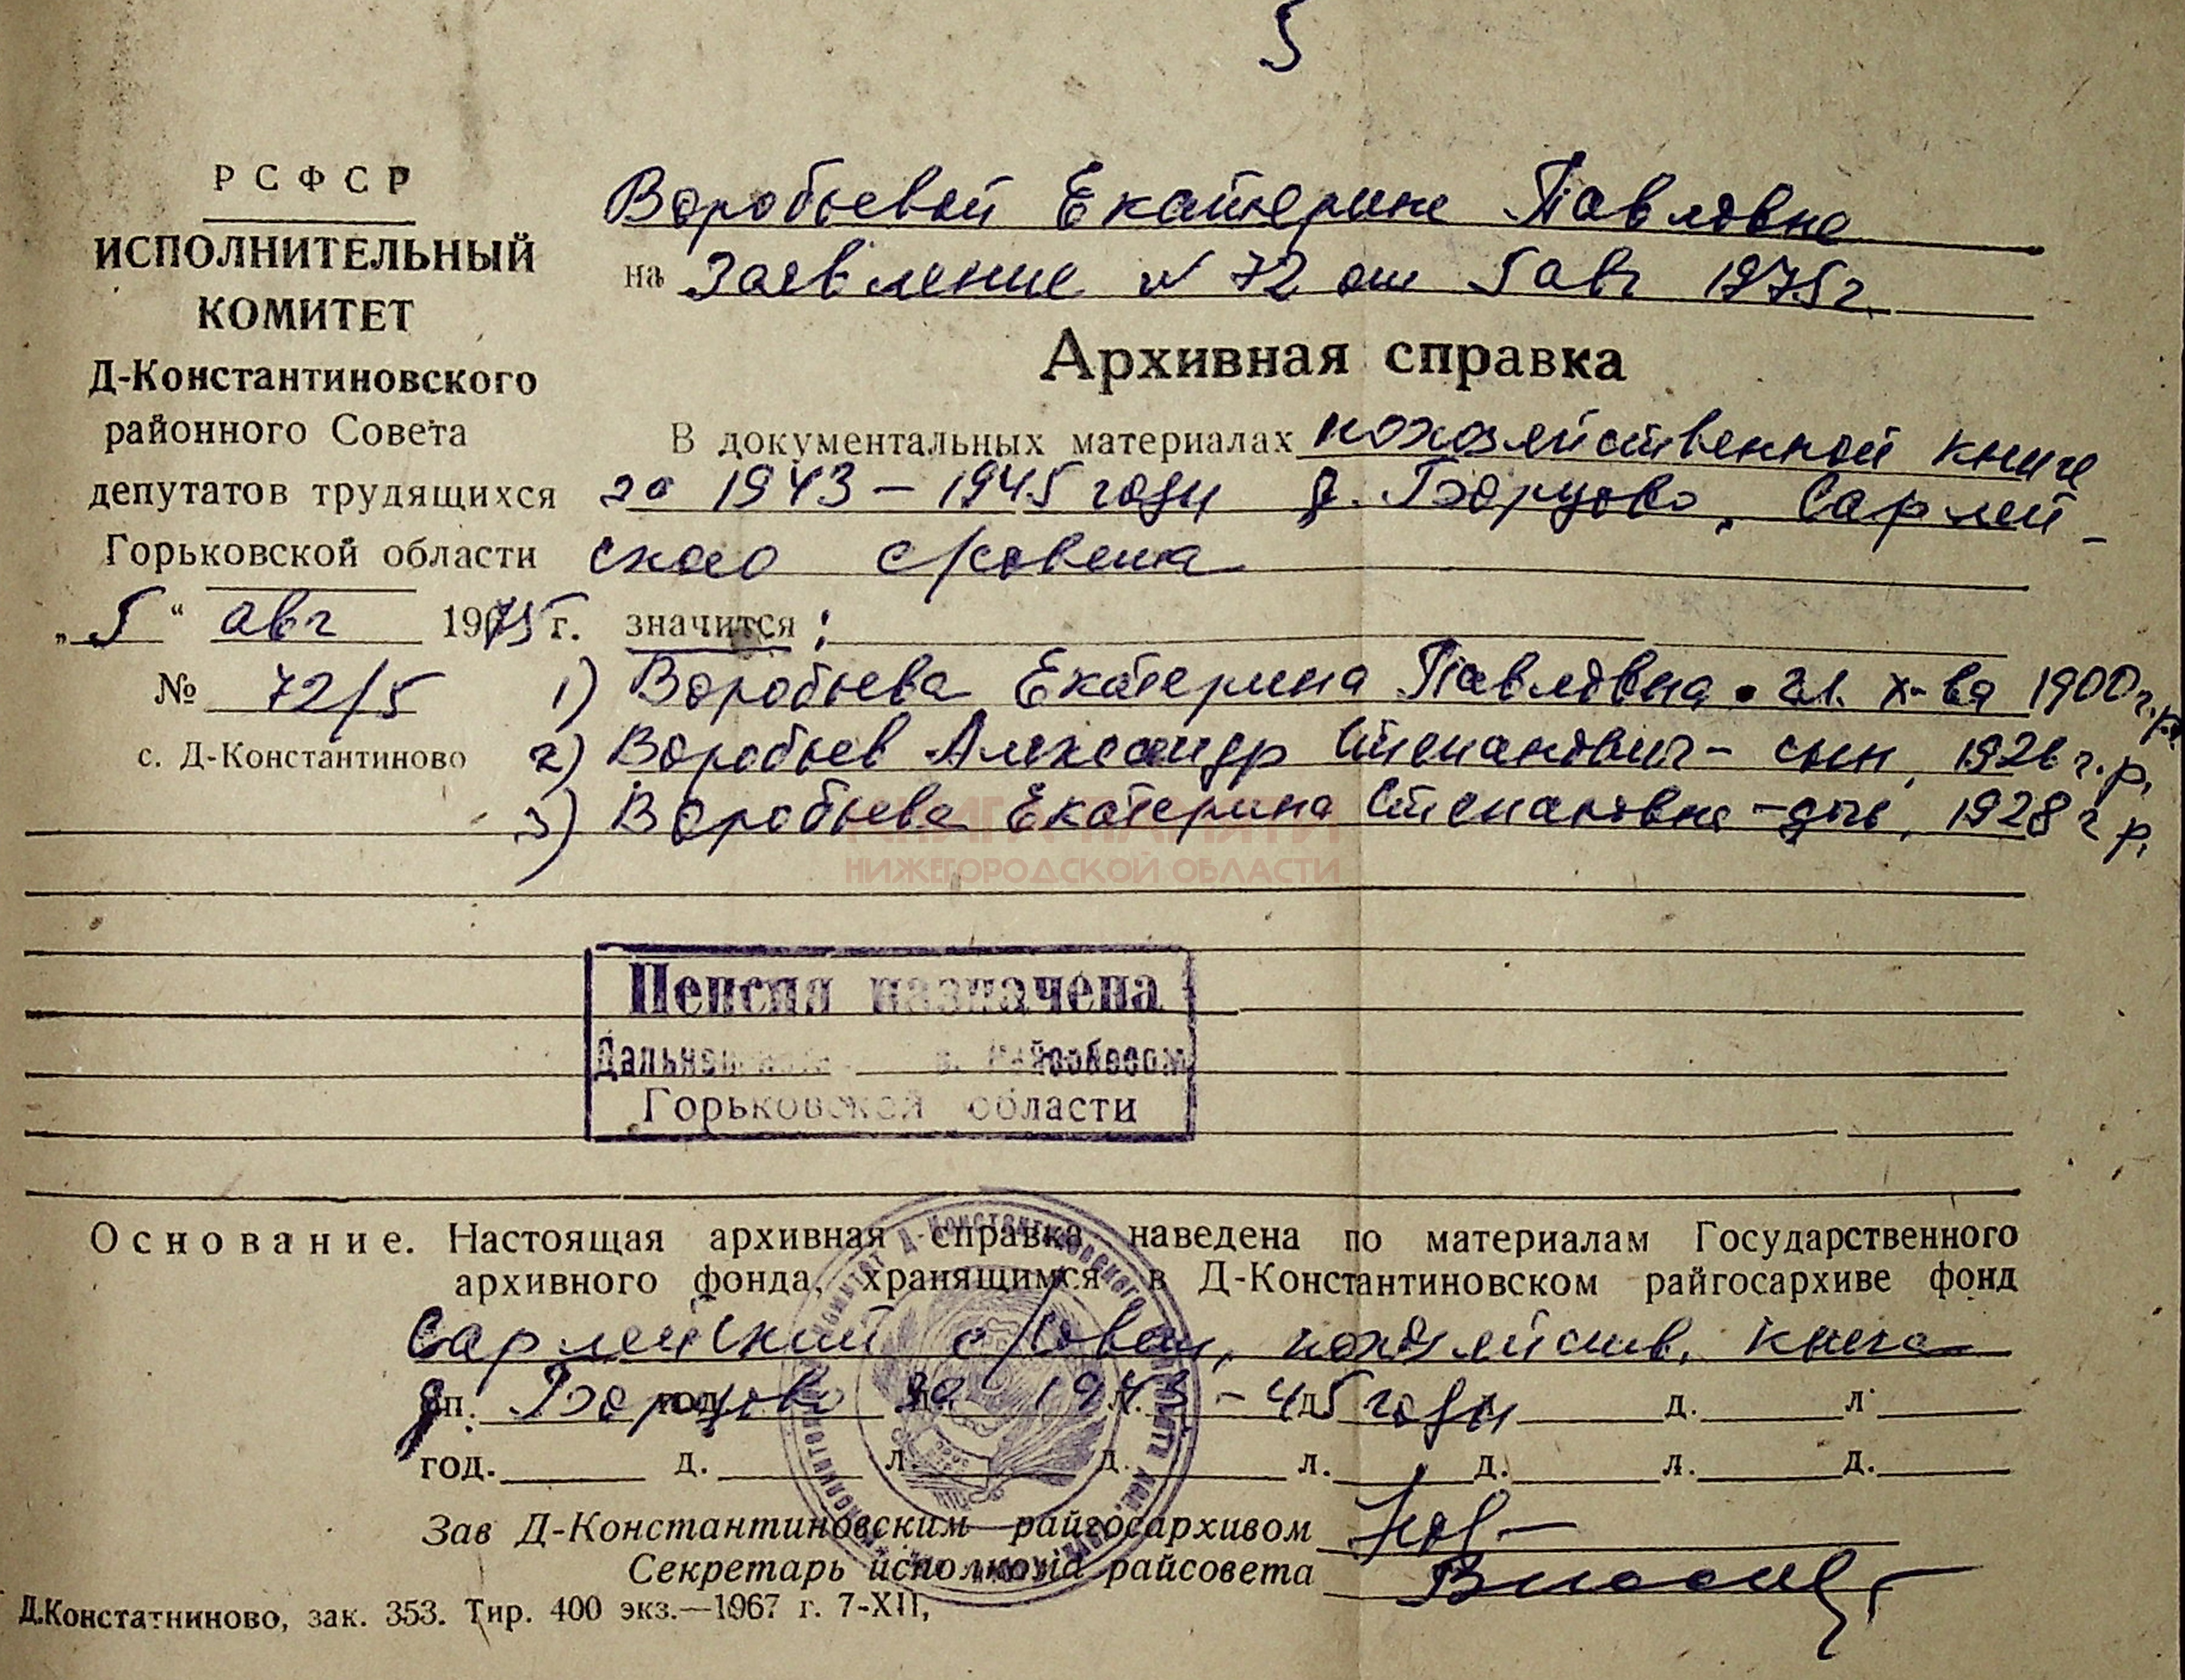 5
РСФСР
ИСПОЛНИТЕЛЬНЫЙ
КОМИТЕТ
Д-Константиновского
районного Совета
депутатов трудящихся
Горьковской области
„5“ авг 1975 г.
№ 72/5
с. Д-Константиново
Воробьевой Екатерине Павловне
на Заявление № 72 от 5 авг 1975 г.
Архивная справка
В документальных материалах похозяйственной книге
за 1943 – 1945 годы д. Борцово, Сарлей-
ского с/совета
значится :
1) Воробьева Екатерина Павловна • гл. х-ва 1900 г.р.
2) Воробьев Александр Степанович – сын, 1926 г.р.
3) Воробьева Екатерина Степановна – дочь, 1928 г р.
КНИГА ПАМЯТИ
НИЖЕГОРОДСКОЙ ОБЛАСТИ
Пенсия назначена
Райсобесом
Горьковской области
Основание. Настоящая архивная справка наведена по материалам Государственного
архивного фонда, хранящимся в Д-Константиновском райгосархиве фонд
Сарлейский с/совет, похозяйств. книга
д. Борцово за 1943 – 45 годы д. л.
год. д. л. д. л. д. л. д.
Зав Д-Константиновским райгосархивом
Секретарь исполкома райсовета
Д.Констатниново, зак. 353. Тир. 400 экз.—1967 г. 7-XII,